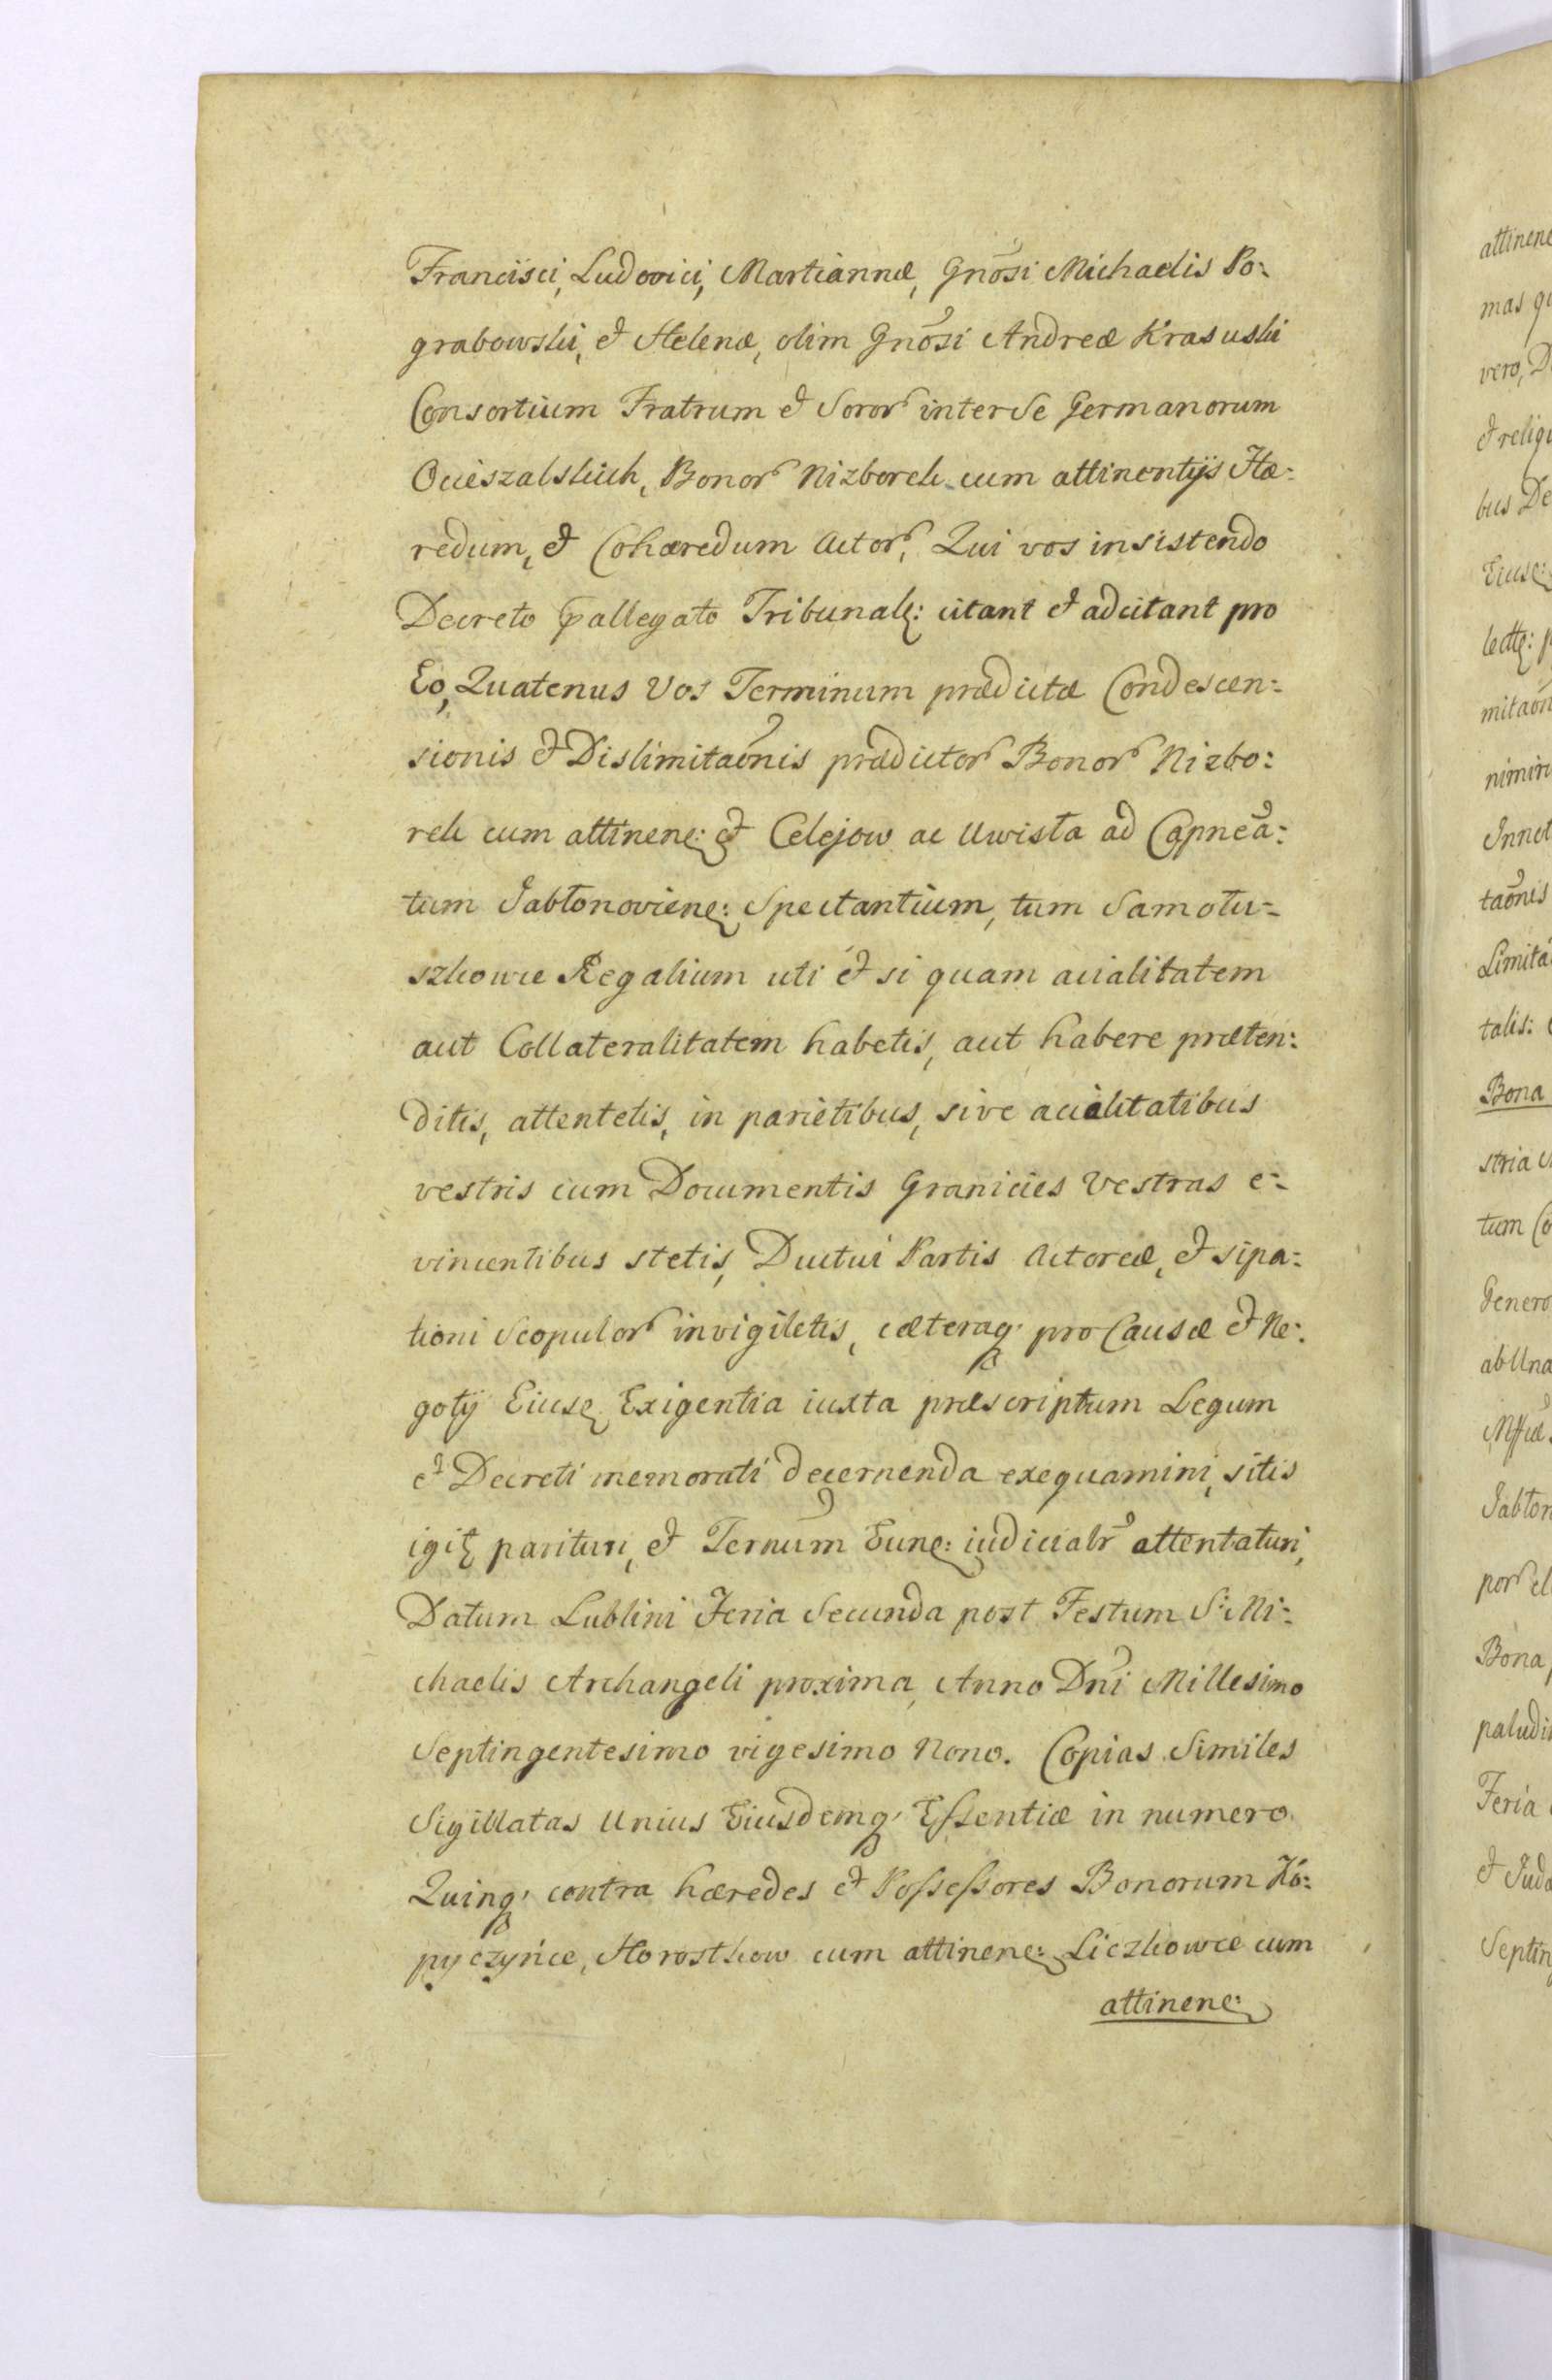 Francisci, Ludovici, Martiannæ, Gnosi Michaelis Po:
grabowski, et Helenæ, olim Gnosi Andreæ Krasuski
Consortium Fratrum et Soror inter se Germanorum
Ocieszalskich, Bonor Nizborek cum attinentijs Hæ:
redum, et Cohæredum Actor, Qui vos insistendo
Decreto pallegato Tribunal: citant et adcitant pro
Eo, Quatenus Vos Terminum prædictæ Condescen:
sionis et Dislimitaonis prædictor Bonor Nizbo:
rek cum attinen: et Celejow ac Uwista ad Capnea:
tum Jabłonovien: Spectantium, tum Samołu=
szkowce Regalium uti et si quam acialitatem
aut Collateralitatem habetis, aut habere præten:
ditis, attentetis, in parietibus, sive acialitatibus
vestris cum Documentis Granicies Vestras e:
vincentibus stetis, Ductui Partis Actoreæ, et sipa:
tioni Scopulor invigiletis, cæteraq pro Causæ et Ne:
gotij Eiusd Exigentia iuxta præscriptum Legum
et Decreti memorati decernenda exequamini, sitis
igit parituri, et Ternum Eund: iudicialr attentaturi,
Datum Lublini Feria Secunda post Festum S: Mi:
chaelis Archangeli proxima, Anno Dni Millesimo
Septingentesimo vigesimo Nono. Copias Similes
Sigillatas Unius Eiusdemq Essentiæ in numero
Quinq contra hæredes et Possessores Bonorum Ko:
pyczyńce, Horostkow cum attinen: Liczkowce cum
attinen:
attinen
mas
vero,
et
bus
lectt:
mitaon
taonis
talis:
Bona
stria
tum
Genero
ab Una
Jabłon
Bona
Feria
et Jud
Septin